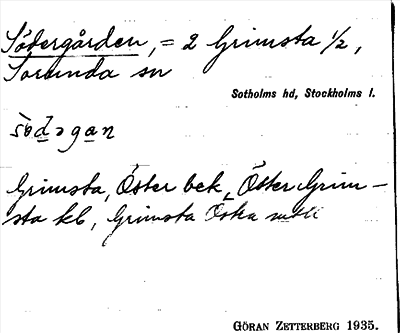 Södergården, = 2 Grimsta 1/2,
Sorunda sn
Sotholms hd, Stockholms l.
sö̀dəgan
Grimsta, Öster bek, Öster Grim-
sta kb, Grimsta Östra
GÖRAN ZETTERBERG 1935.